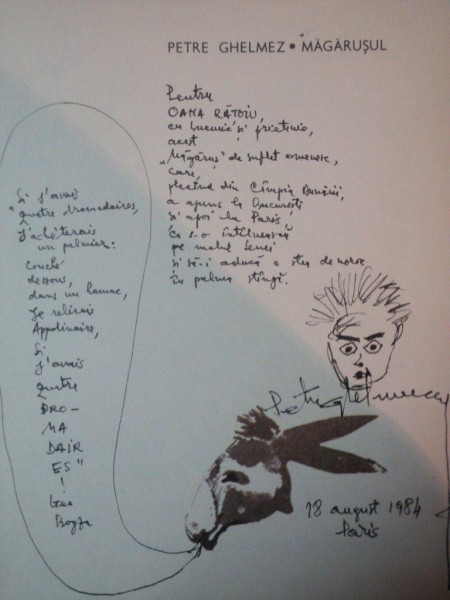 PETRE GHELMEZ • MĂGĂRUȘUL
Pentru
OANA RĂTOIU,
cu bucurie și prietenie,
acest
„Măgăruș” de suflet omenesc,
care,
plecînd din Cîmpia Dunării,
a ajuns la București
și apoi la Paris,
ca s-o întîlnească
pe malul Senei
și să-i aducă o stea de noroc
în palma stîngă.
Petre Ghelmez
18 august 1984
Paris
Si j'avais
"quatre dromadaires,
J'achèterais
un palmier:
Couché
dessous,
dans un hamac,
Je relirais
Appolinaire,
Si
j'avais
quatre
DRO-
MA
DAIR
ES"
!
Geo
Bogza